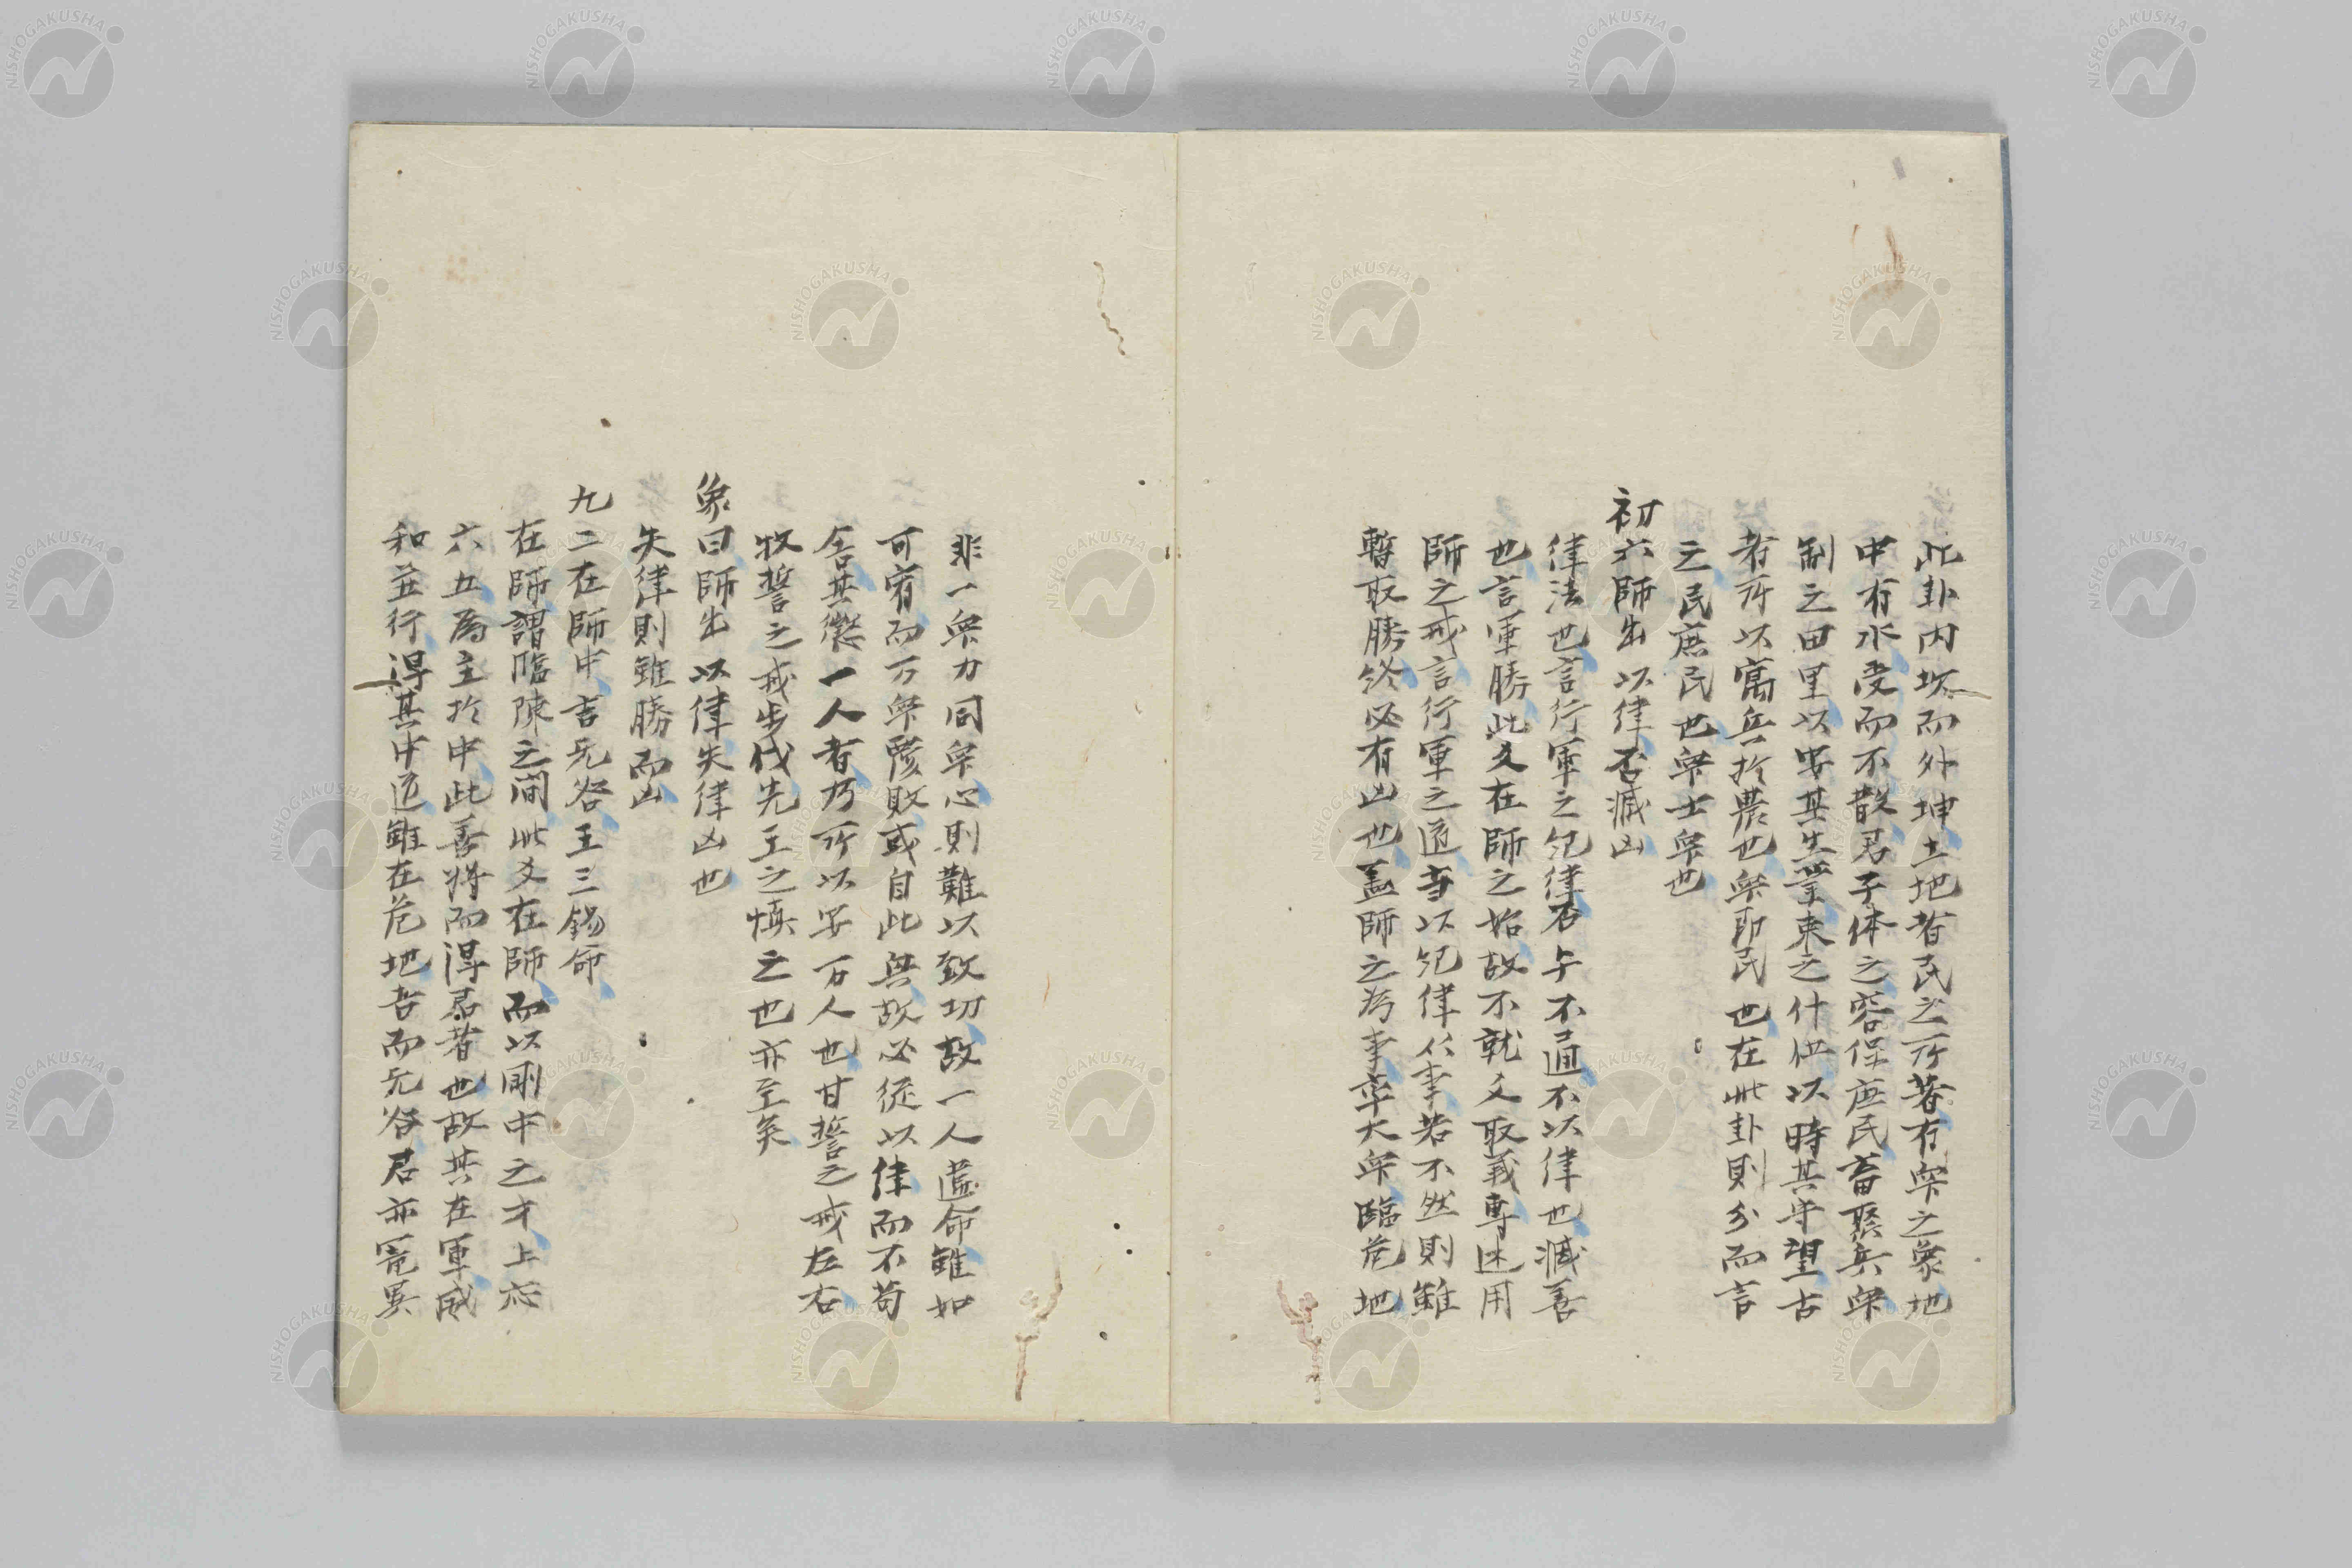 此卦内坎而外坤土地者民之所著有衆之象地
中有水受而不散君子体之容保庶民畜聚兵衆
制之田里以安其生業束之什伍以時其守望古
者所以寓兵於農也衆即民也在此卦則分而言
之民庶民也衆士衆也
初六師出以律否臧凶
律法也言行軍之紀律否与不通不以律也臧善
也言軍勝此爻在師之始故不就爻取義専述用
師之戒言行軍之道当以紀律従事若不然則雖
暫取勝終必有凶也盖師之為事率大衆臨危地
非一衆力同衆心則難以致功故一人違命雖如
可宥而万衆覆敗或自此興故必従以律而不苟
舎其懲一人者乃所以安万人也甘誓之戒左右
牧誓之戒歩伐先王之慎之也亦至矣
象曰師出以律失律凶也
失律則雖勝而凶
九二在師中吉无咎王三錫命
在師謂臨陳之間此爻在師而以剛中之才上応
六五為主於中此善将而得君者也故其在軍威
和並行得其中道雖在危地吉而无咎君亦寵異
NISHOGAKUSHA